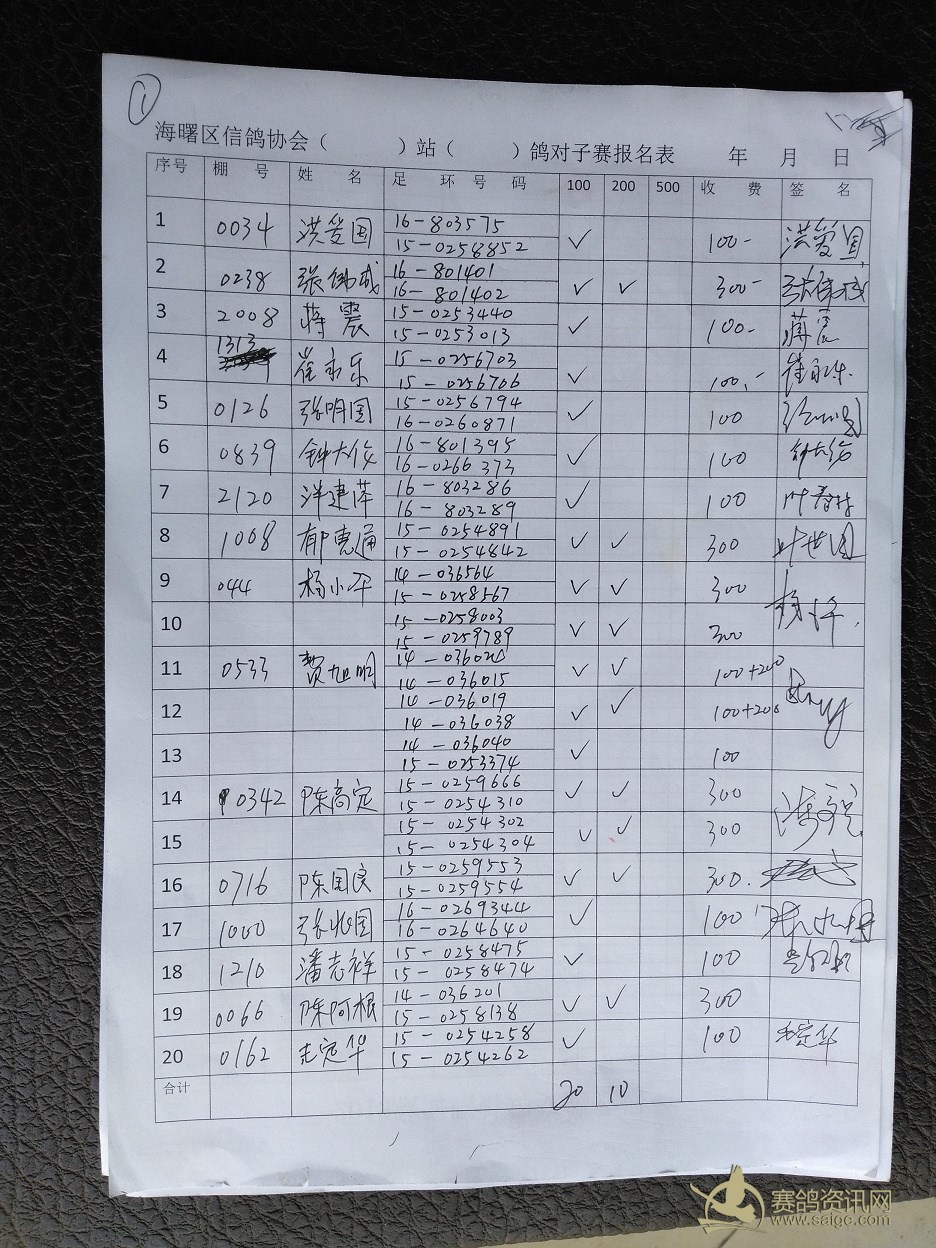 1
海曙区信鸽协会（ ）站（ ）鸽对子赛报名表 年 月 日
序号 棚 号 姓 名 足 环 号 码 100 200 500 收 费 签 名
1 0034 洪爱国 16-803575 ✓ 100- 洪爱国
15-0258852
2 0238 张伟成 16-801401 ✓ ✓ 300-
16-801402
3 2008 蒋震 15-0253440 ✓ 100- 蒋震
15-0253013
4 1313 崔永乐 15-0256703 ✓ 100.- 崔永乐
15-0256706
5 0126 张明国 15-0256794 ✓ 100
16-0260871
6 0839 钟大俊 16-801395 ✓ 100
16-0266373
7 2120 16-803286 ✓ 100
16-803289
8 1008 郁惠通 15-0254891 ✓ ✓ 300 叶世国
15-0254842
9 044 杨小平 14-036564 ✓ ✓ 300
15-0258567
10 15-0258003 ✓ ✓ 300
15-0259789
11 0533 贾旭明 ✓ ✓ 100+200
14-036015
12 14-036019 ✓ ✓ 100+200
14-036038
13 14-036040 ✓ 100
15-0253374
14 0342 陈高定 15-0259666 ✓ ✓ 300
15-0254310
15 15-0254302 ✓ ✓ 300
15-0254304
16 0716 陈国良 15-0259553 ✓ ✓ 300.
15-0259554
17 1000 张兆国 16-0269344 ✓ 100
16-0264640
18 1210 潘志祥 15-0258475 ✓ 100
15-0258474
19 0066 陈阿根 14-036201 ✓ ✓ 300
15-0258138
20 0162 王定华 15-0254258 ✓ 100
15-0254262
合计 20 10
赛鸽资讯网
www.saige.com